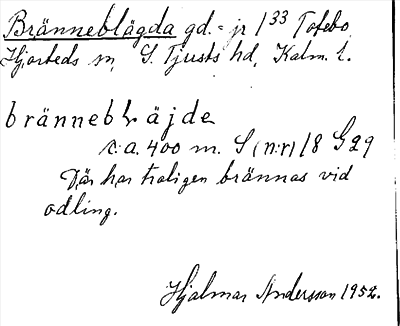 Bränneblägda gd. = jr 1³³ Totebo
Hjorteds sn, S. Tjusts hd, Kalm. l.
brännebläjde
c:a. 400 m. S (n:r) 18 G 29
Där har troligen brännas vid
odling.
Hjalmar Andersson 1952.